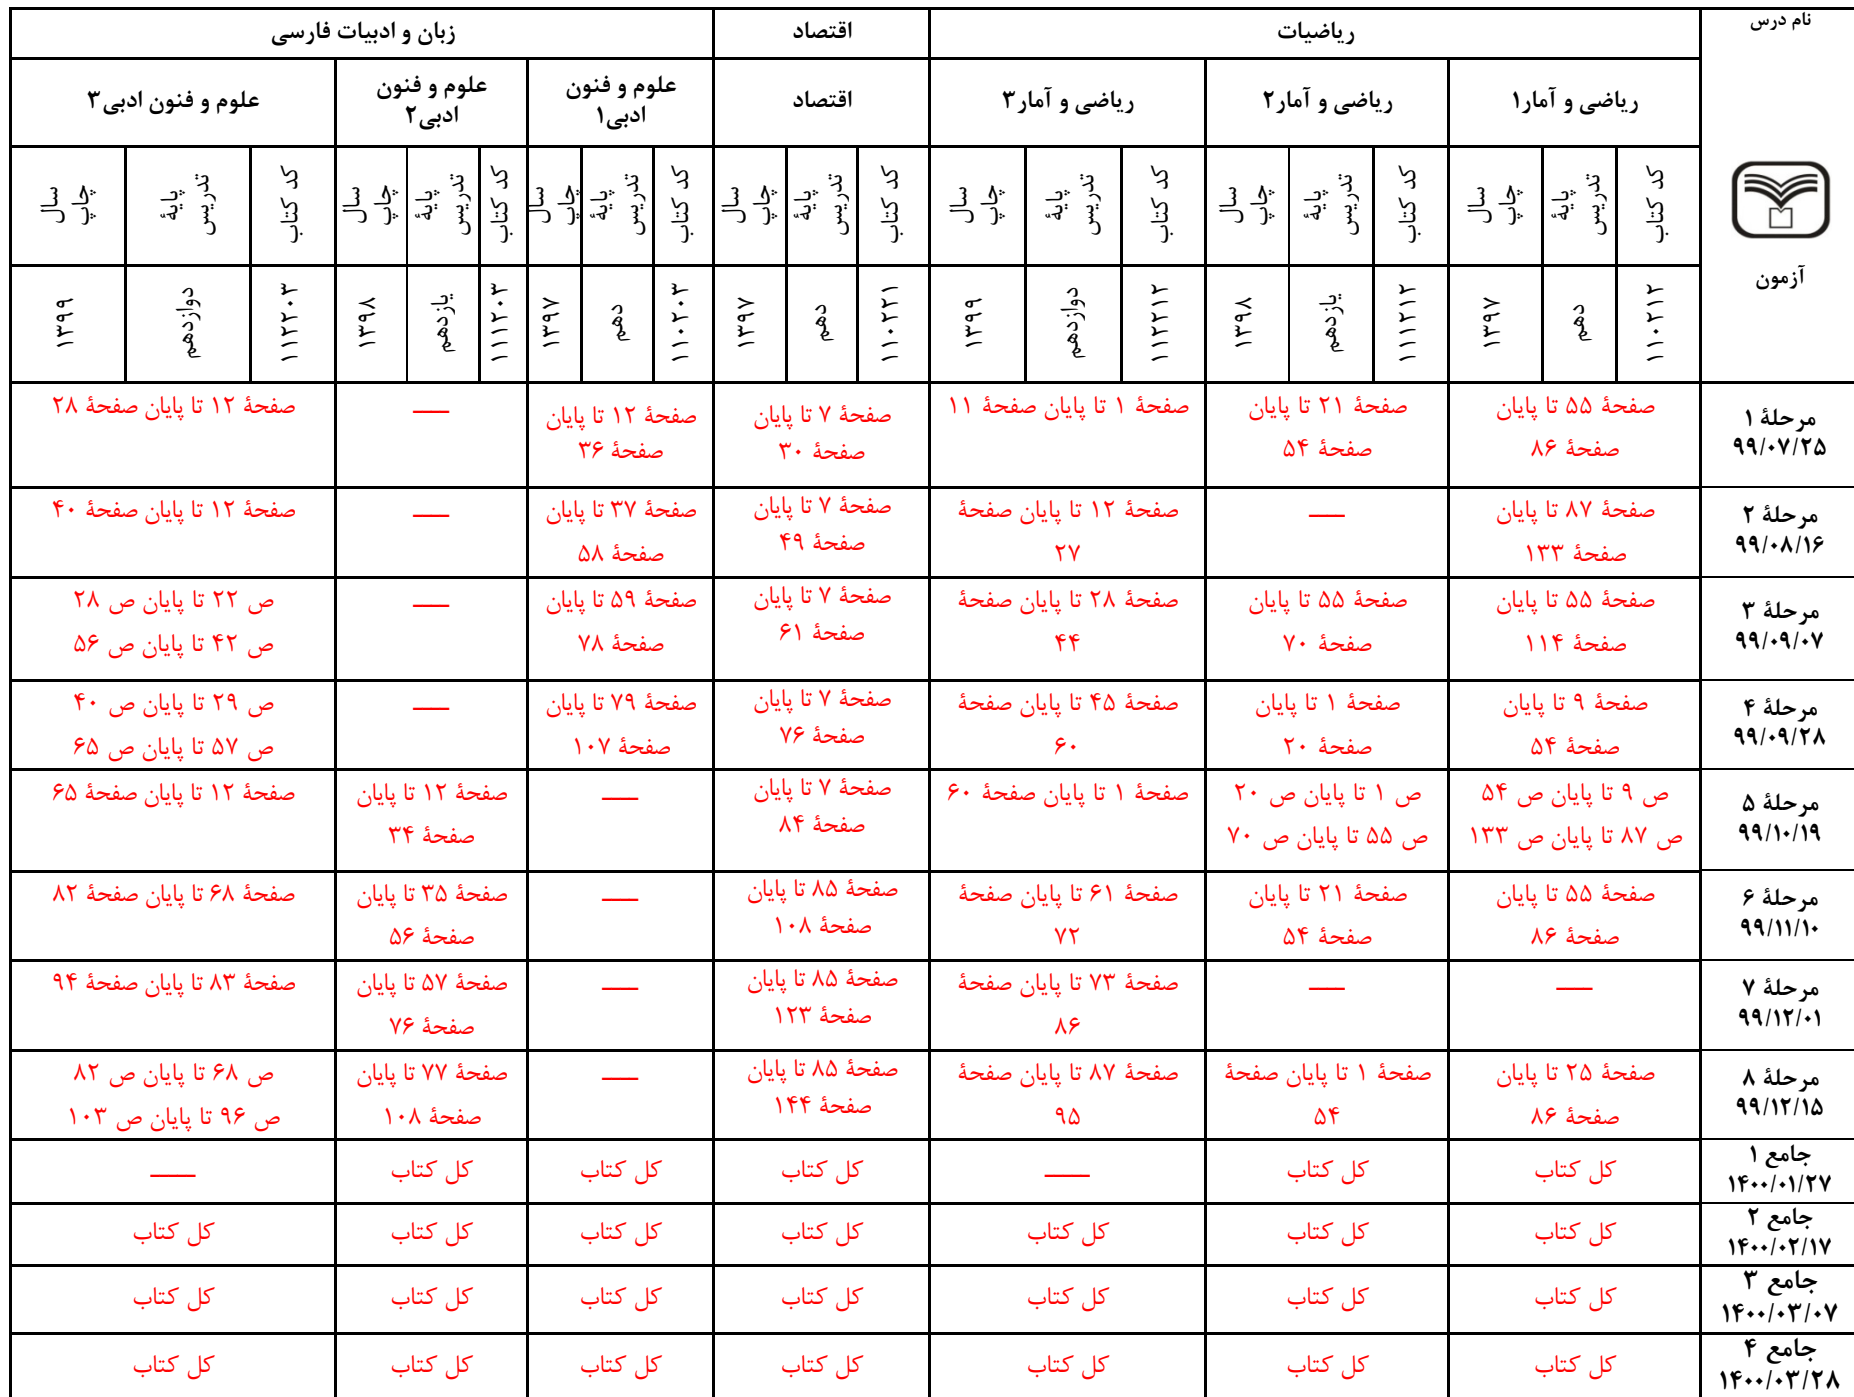 نام درس
ریاضیات
اقتصاد
زبان و ادبیات فارسی
ریاضی و آمار۱
ریاضی و آمار۲
ریاضی و آمار۳
اقتصاد
علوم و فنون
ادبی۱
علوم و فنون
ادبی۲
علوم و فنون ادبی۳
کد کتاب
پایهٔ
تدریس
سال
چاپ
کد کتاب
پایهٔ
تدریس
سال
چاپ
کد کتاب
پایهٔ
تدریس
سال
چاپ
کد کتاب
پایهٔ
تدریس
سال
چاپ
کد کتاب
پایهٔ
تدریس
سال
چاپ
کد کتاب
پایهٔ
تدریس
سال
چاپ
کد کتاب
پایهٔ
تدریس
سال
چاپ
آزمون
۱۱۰۲۱۲
دهم
۱۳۹۷
۱۱۱۲۱۲
یازدهم
۱۳۹۸
۱۱۲۲۱۲
دوازدهم
۱۳۹۹
۱۱۰۲۲۱
دهم
۱۳۹۷
۱۱۰۲۰۳
دهم
۱۳۹۷
۱۱۱۲۰۳
یازدهم
۱۳۹۸
۱۱۲۲۰۳
دوازدهم
۱۳۹۹
مرحلهٔ ۱
۹۹/۰۷/۲۵
صفحهٔ ۵۵ تا پایان
صفحهٔ ۸۶
صفحهٔ ۲۱ تا پایان
صفحهٔ ۵۴
صفحهٔ ۱ تا پایان صفحهٔ ۱۱
صفحهٔ ۷ تا پایان
صفحهٔ ۳۰
صفحهٔ ۱۲ تا پایان
صفحهٔ ۳۶
—
صفحهٔ ۱۲ تا پایان صفحهٔ ۲۸
مرحلهٔ ۲
۹۹/۰۸/۱۶
صفحهٔ ۸۷ تا پایان
صفحهٔ ۱۳۳
—
صفحهٔ ۱۲ تا پایان صفحهٔ
۲۷
صفحهٔ ۷ تا پایان
صفحهٔ ۴۹
صفحهٔ ۳۷ تا پایان
صفحهٔ ۵۸
—
صفحهٔ ۱۲ تا پایان صفحهٔ ۴۰
مرحلهٔ ۳
۹۹/۰۹/۰۷
صفحهٔ ۵۵ تا پایان
صفحهٔ ۱۱۴
صفحهٔ ۵۵ تا پایان
صفحهٔ ۷۰
صفحهٔ ۲۸ تا پایان صفحهٔ
۴۴
صفحهٔ ۷ تا پایان
صفحهٔ ۶۱
صفحهٔ ۵۹ تا پایان
صفحهٔ ۷۸
—
ص ۲۲ تا پایان ص ۲۸
ص ۴۲ تا پایان ص ۵۶
مرحلهٔ ۴
۹۹/۰۹/۲۸
صفحهٔ ۹ تا پایان
صفحهٔ ۵۴
صفحهٔ ۱ تا پایان
صفحهٔ ۲۰
صفحهٔ ۴۵ تا پایان صفحهٔ
۶۰
صفحهٔ ۷ تا پایان
صفحهٔ ۷۶
صفحهٔ ۷۹ تا پایان
صفحهٔ ۱۰۷
—
ص ۲۹ تا پایان ص ۴۰
ص ۵۷ تا پایان ص ۶۵
مرحلهٔ ۵
۹۹/۱۰/۱۹
ص ۹ تا پایان ص ۵۴
ص ۸۷ تا پایان ص ۱۳۳
ص ۱ تا پایان ص ۲۰
ص ۵۵ تا پایان ص ۷۰
صفحهٔ ۱ تا پایان صفحهٔ ۶۰
صفحهٔ ۷ تا پایان
صفحهٔ ۸۴
—
صفحهٔ ۱۲ تا پایان
صفحهٔ ۳۴
صفحهٔ ۱۲ تا پایان صفحهٔ ۶۵
مرحلهٔ ۶
۹۹/۱۱/۱۰
صفحهٔ ۵۵ تا پایان
صفحهٔ ۸۶
صفحهٔ ۲۱ تا پایان
صفحهٔ ۵۴
صفحهٔ ۶۱ تا پایان صفحهٔ
۷۲
صفحهٔ ۸۵ تا پایان
صفحهٔ ۱۰۸
—
صفحهٔ ۳۵ تا پایان
صفحهٔ ۵۶
صفحهٔ ۶۸ تا پایان صفحهٔ ۸۲
مرحلهٔ ۷
۹۹/۱۲/۰۱
—
—
صفحهٔ ۷۳ تا پایان صفحهٔ
۸۶
صفحهٔ ۸۵ تا پایان
صفحهٔ ۱۲۳
—
صفحهٔ ۵۷ تا پایان
صفحهٔ ۷۶
صفحهٔ ۸۳ تا پایان صفحهٔ ۹۴
مرحلهٔ ۸
۹۹/۱۲/۱۵
صفحهٔ ۲۵ تا پایان
صفحهٔ ۸۶
صفحهٔ ۱ تا پایان صفحهٔ
۵۴
صفحهٔ ۸۷ تا پایان صفحهٔ
۹۵
صفحهٔ ۸۵ تا پایان
صفحهٔ ۱۴۴
—
صفحهٔ ۷۷ تا پایان
صفحهٔ ۱۰۸
ص ۶۸ تا پایان ص ۸۲
ص ۹۶ تا پایان ص ۱۰۳
جامع ۱
۱۴۰۰/۰۱/۲۷
کل کتاب
کل کتاب
—
کل کتاب
کل کتاب
کل کتاب
—
جامع ۲
۱۴۰۰/۰۲/۱۷
کل کتاب
کل کتاب
کل کتاب
کل کتاب
کل کتاب
کل کتاب
کل کتاب
جامع ۳
۱۴۰۰/۰۳/۰۷
کل کتاب
کل کتاب
کل کتاب
کل کتاب
کل کتاب
کل کتاب
کل کتاب
جامع ۴
۱۴۰۰/۰۳/۲۸
کل کتاب
کل کتاب
کل کتاب
کل کتاب
کل کتاب
کل کتاب
کل کتاب